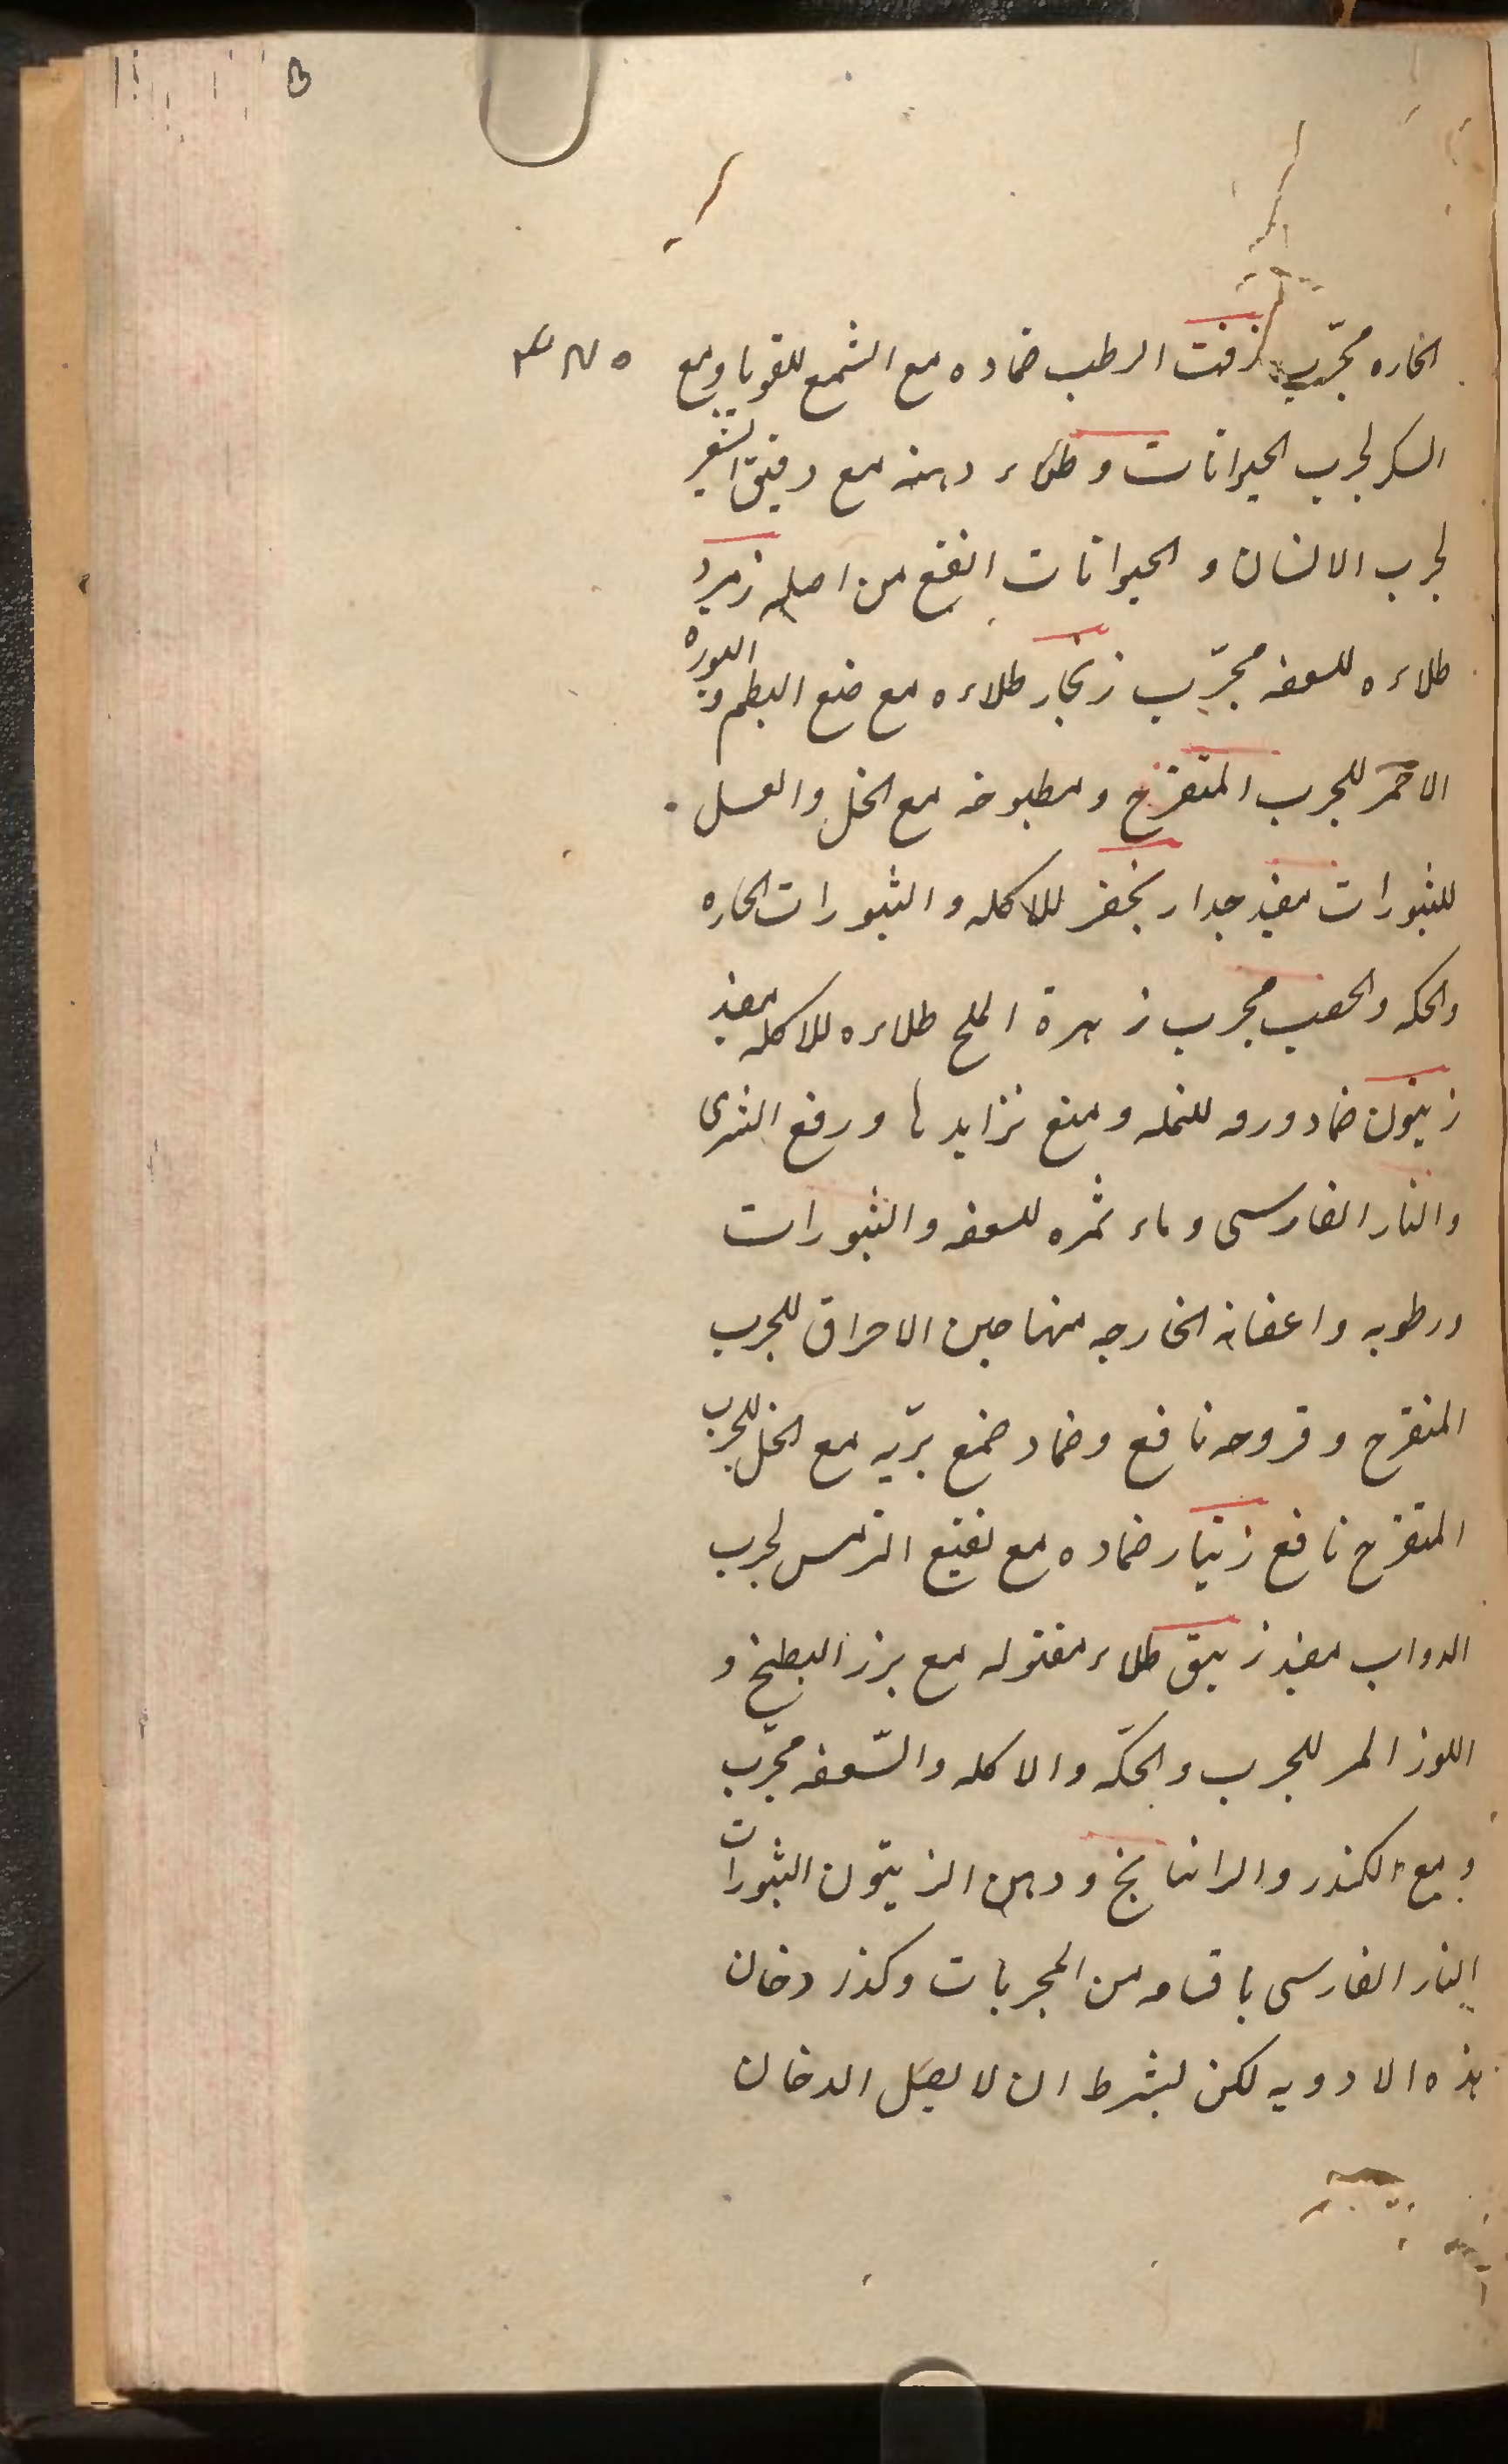 الحاره مجرّب زفت الرطب ضماده مع الشمع للقوبا ومع
السكر لجرب الحيوانات وطلاء دهنه مع دقيق الشعير
لجرب الانسان و الحيوانات انفع من اصله زمرد
طلاءه للسعفه مجرّب زنجار طلاءه مع ضمغ البطم و البوره
الاحمر للجرب المتقرح ومطبوخه مع الخل والعسل
للثبورات مفيد جدا زنجفر للاكله و الثبورات الحاره
والحكه والحصب مجرب زهرة الملح طلاءه للاكله مفيد
زيتون ضماد ورقه للنمله ومنع تزايدها ورفع الشرى
والنار الفارسى وماء ثمره للسعفه والثبورات
ورطوبه واعضانه الخارجه منها حين الاحراق للجرب
المتقرح وقروحه نافع وضماد ضمغ بريّه مع الخل للجرب
المتقرح نافع زنيار ضماده مع نقيع الترمس لجرب
الدواب مفيد زيبق طلاء مقتوله مع بزر البطيخ و
اللوز المر للجرب والحكّه والاكله والسّعفه مجرّب
ومع الكندر والراتيانج ودهن الزيتون الثبورات
النار الفارسى باقسامه من المجربات وكذز دخان
هذه الادويه لكن لبشرط ان لا يصل الدخان